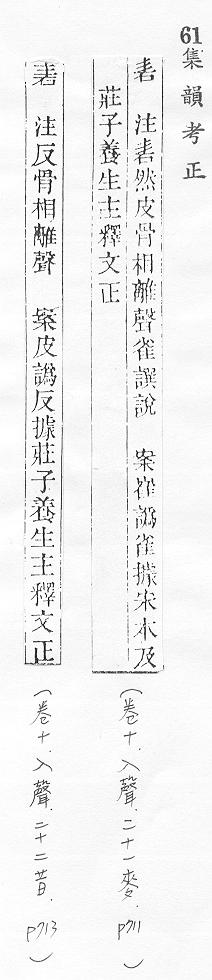 61集韻考正
砉 注砉然皮骨相離聲雀譔說 案崔譌雀據宋本及
莊子養生主釋文正
(卷十.入聲.二十一麥.p711)
砉 注反骨相離聲 案皮譌反據莊子養生主釋文正
(卷十.入聲.二十二昔.p713)